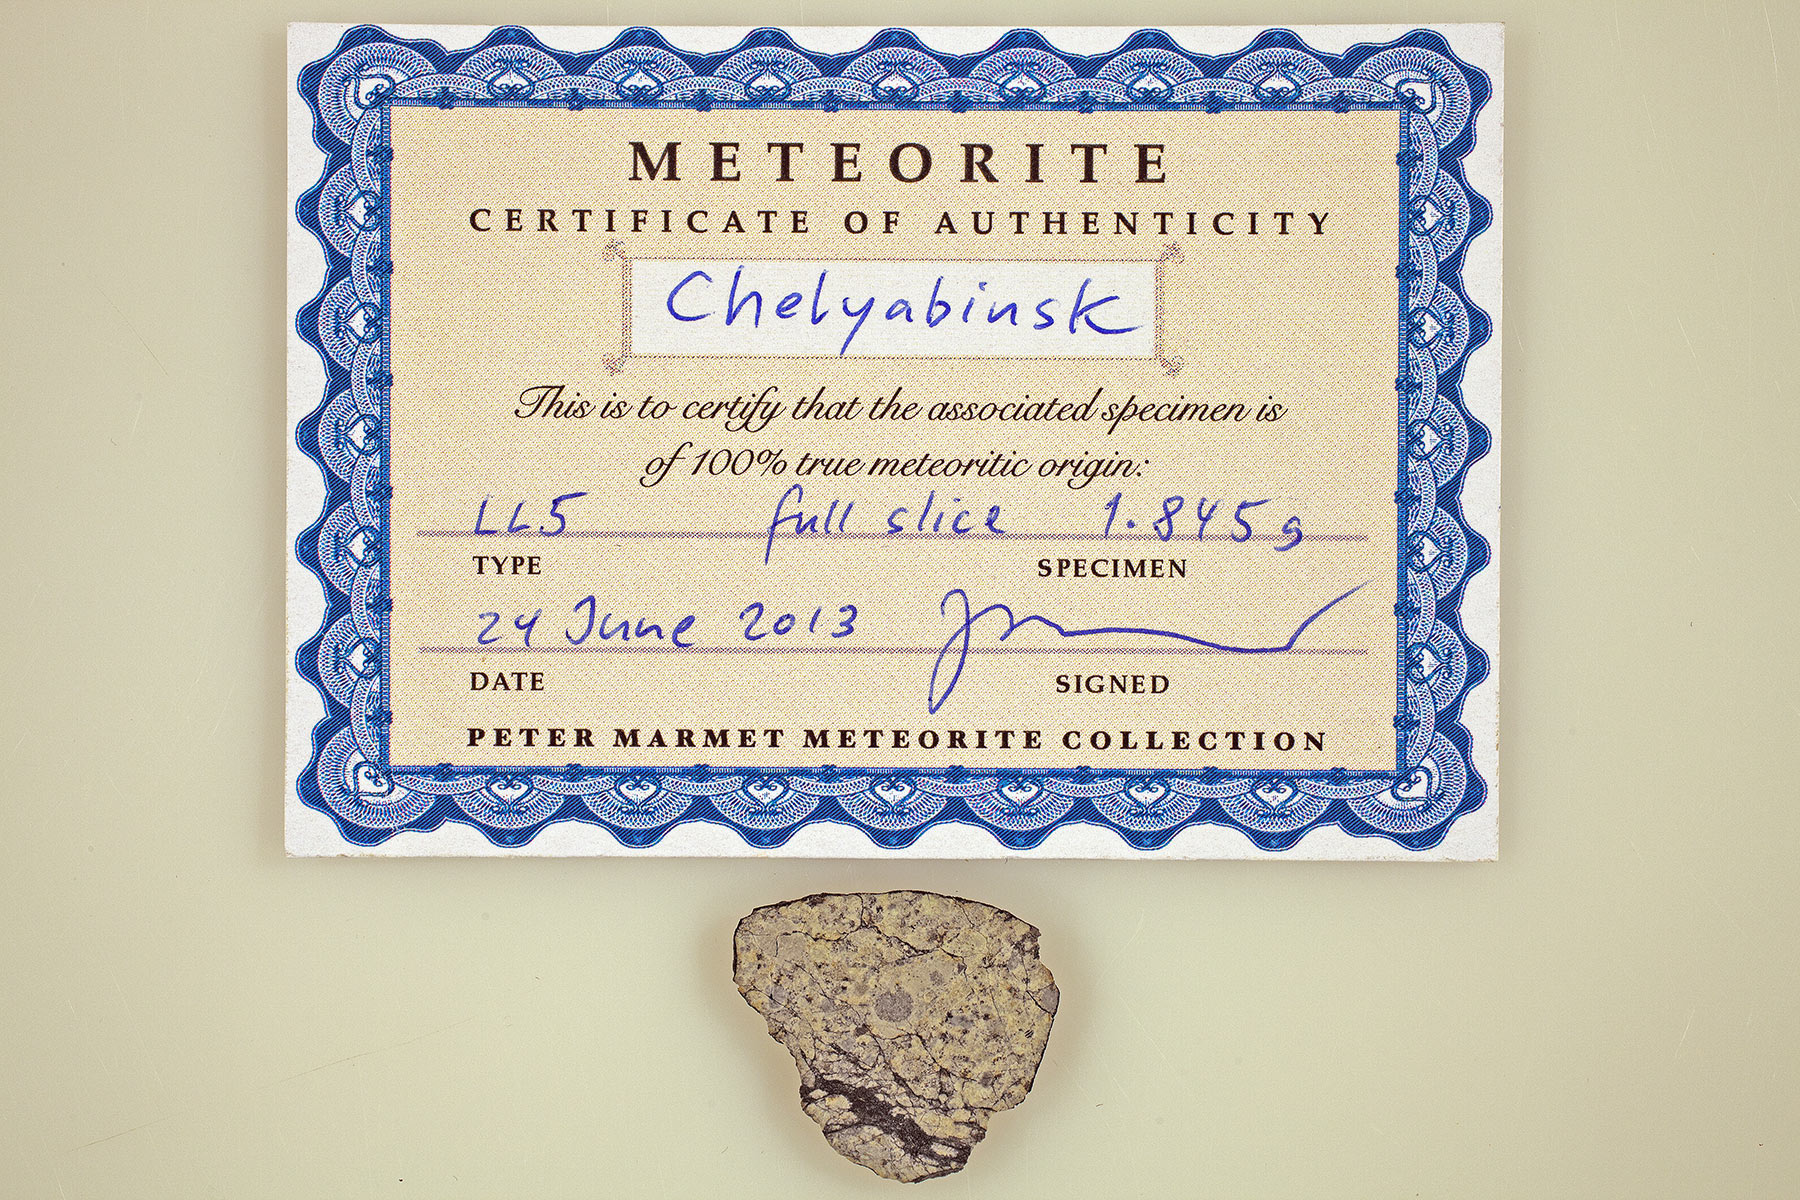 METEORITE
CERTIFICATE OF AUTHENTICITY
Chelyabinsk
This is to certify that the associated specimen is
of 100% true meteoritic origin:
LL5 full slice 1.845 g
TYPE SPECIMEN
24 June 2013
DATE SIGNED
PETER MARMET METEORITE COLLECTION